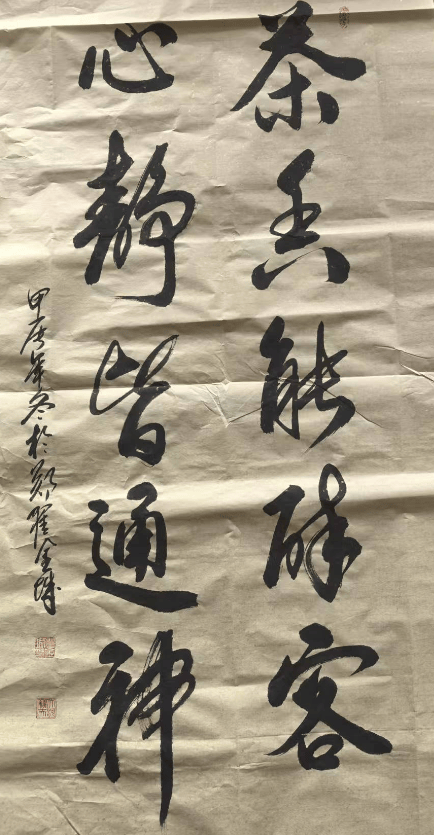 茶香能醉客
心静皆通神
甲辰年冬於郑翟金城